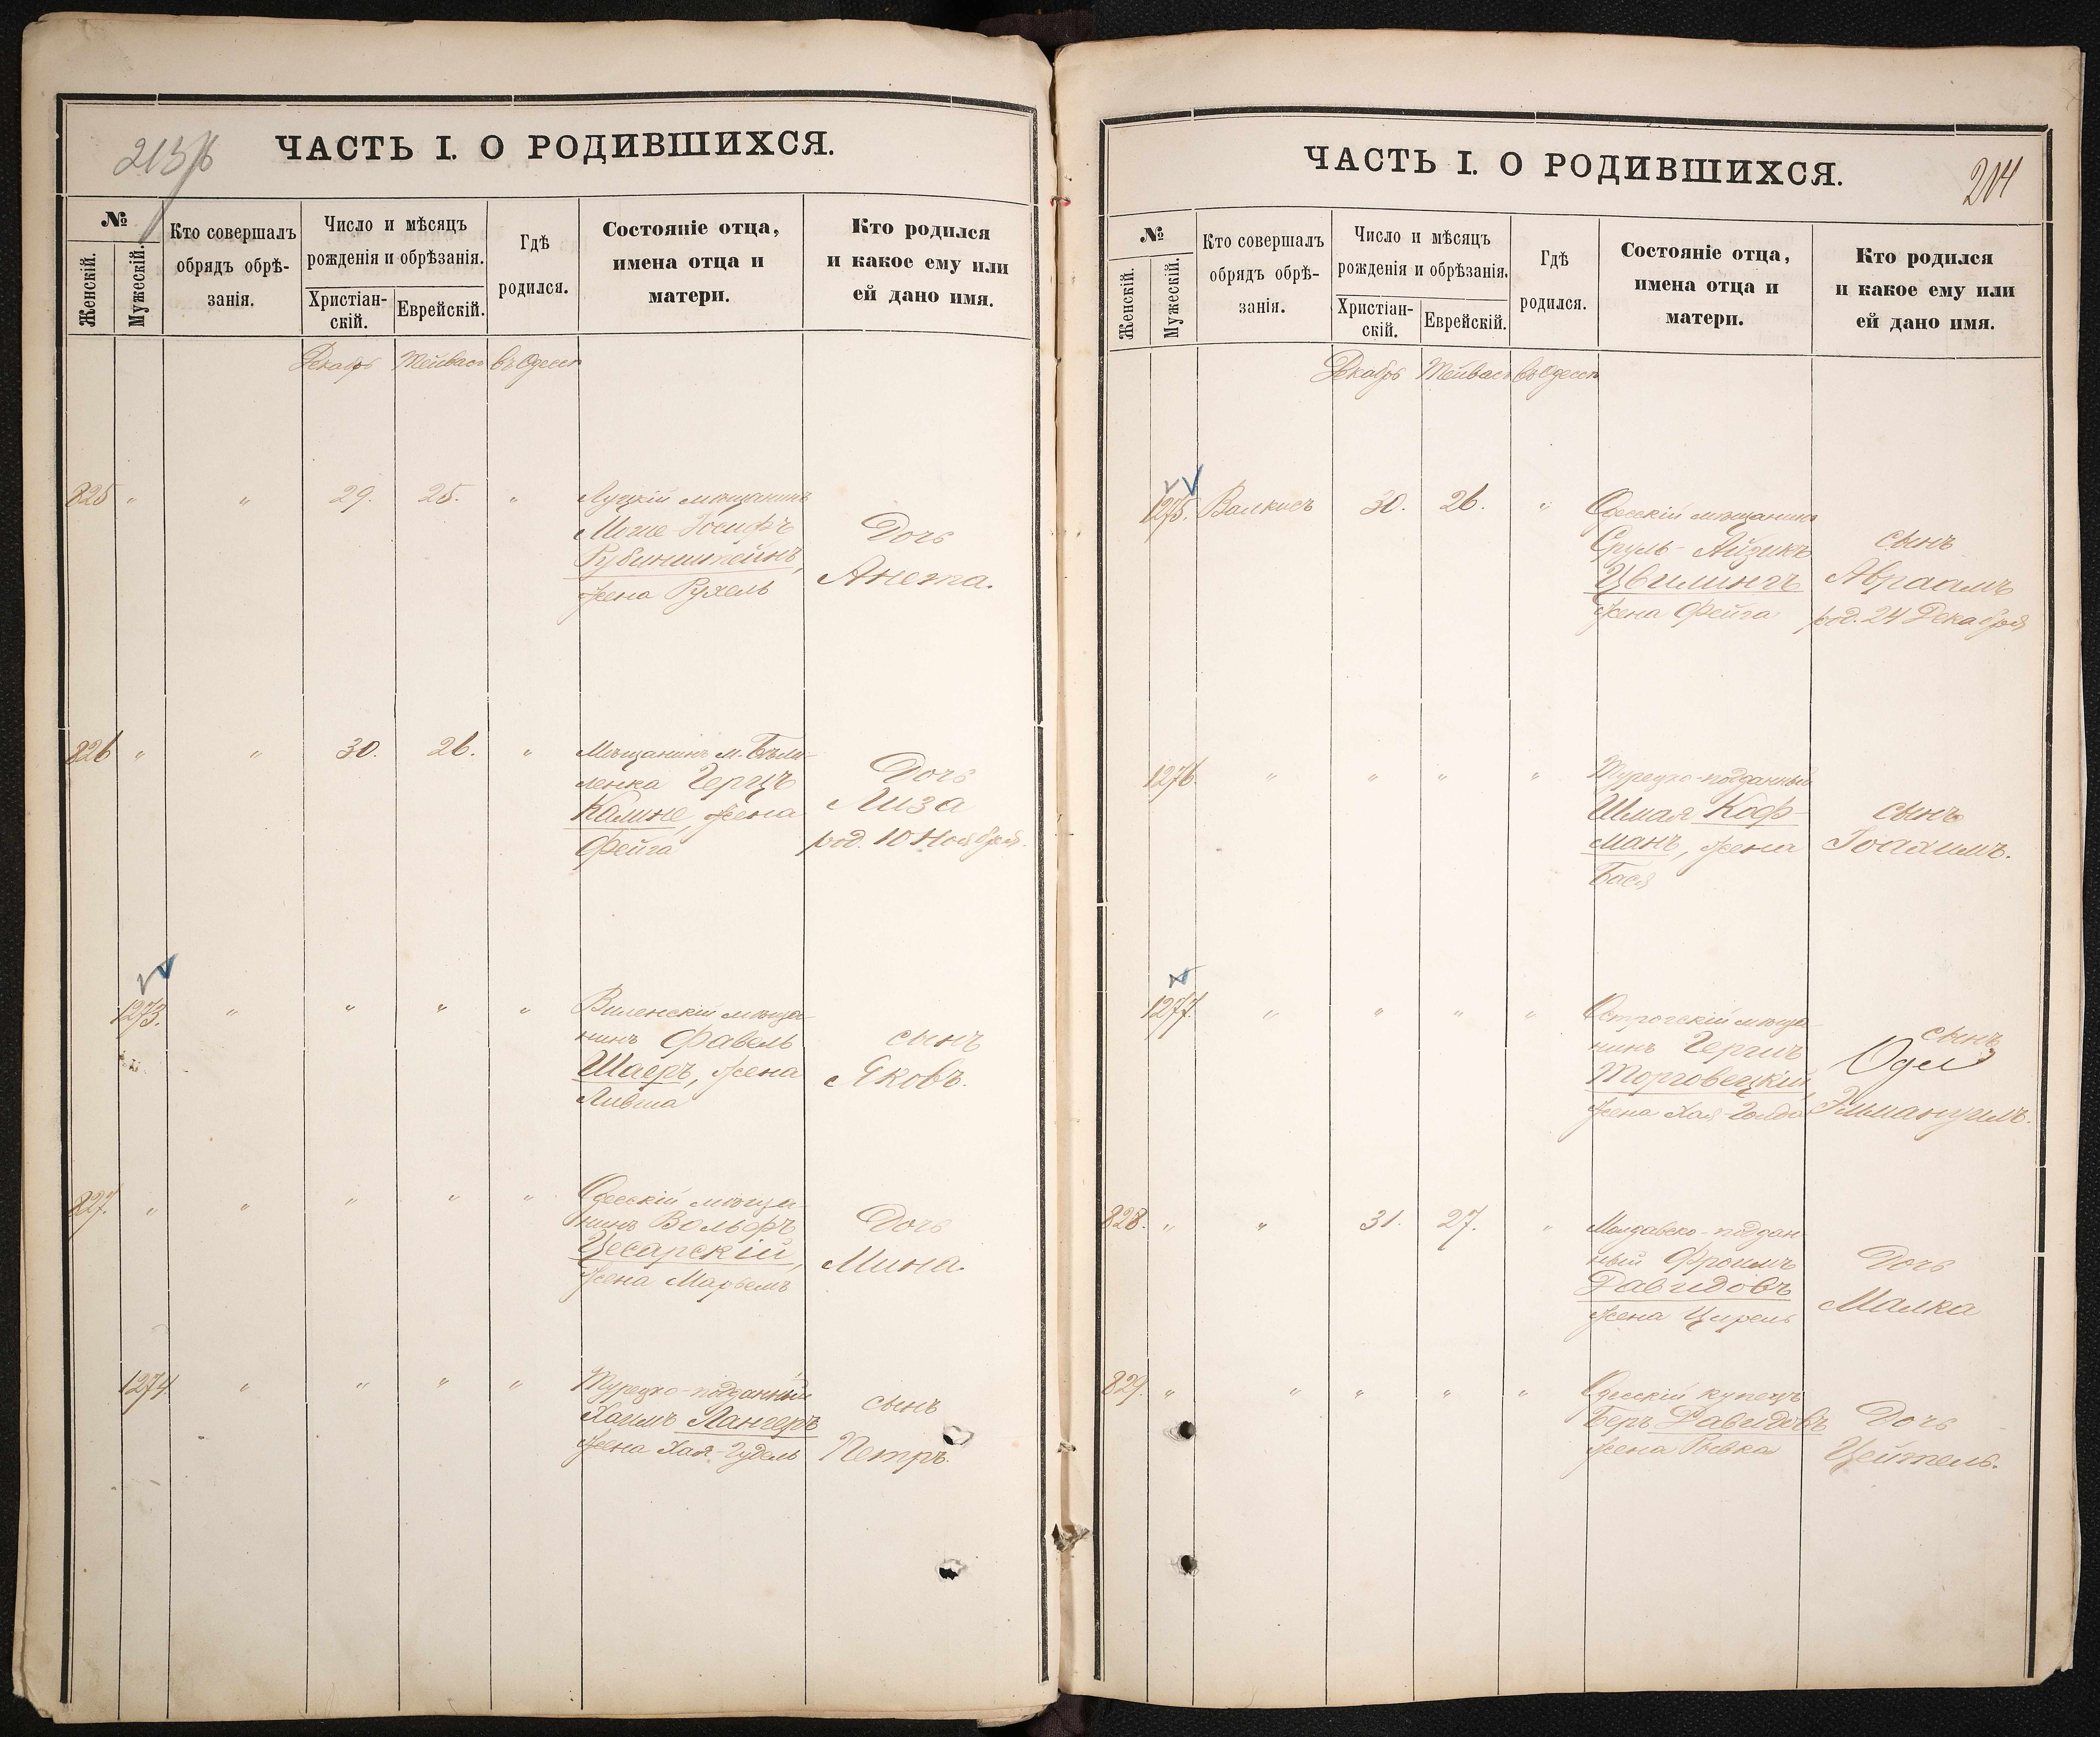 ЧАСТЬ I. О РОДИВШИХСЯ.
№
Женскій.
Мужескій.
Кто совершалъ
обрядъ обрѣ-
занія.
Число и мѣсяцъ
рожденія и обрѣзанія.
Христіан-
скій.
Еврейскій.
Гдѣ
родился.
Состояніе отца,
имена отца и
матери.
Кто родился
и какое ему или
ей дано имя.
Декабрь Тейвасъ въ Одессѣ
825 " " 29. 25. " Луцкій мѣщанинъ
Моше Іосифъ
Рубинштейнъ,
жена Рухель
Дочь
Анета.
826 " " 30. 26. " Мѣщанинъ м.
Герцъ
жена
Фейга
Дочь
Лиза
род. 10 Ноября.
1273. " " " " Виленскій мѣща-
нинъ Фавель
Шаеръ, жена
Ливша
сынъ
Яковъ.
827. " " " " " Одесскій мѣща-
нинъ Вольфъ
Цесарскій,
жена Марьемъ
Дочь
Мина.
1274 " " " " Турецко-подданный
Хаимъ Лангеръ
жена Хая-Гудель
сынъ
Петръ.
ЧАСТЬ I. О РОДИВШИХСЯ.
204
№
Женскій.
Мужескій.
Кто совершалъ
обрядъ обрѣ-
занія.
Число и мѣсяцъ
рожденія и обрѣзанія.
Христіан-
скій.
Еврейскій.
Гдѣ
родился.
Состояніе отца,
имена отца и
матери.
Кто родился
и какое ему или
ей дано имя.
Декабрь Тейвасъ въ Одессѣ
1275. Валкисъ 30. 26. " Одесскій мѣщанинъ
Сруль-Айзикъ
Цвилингъ
жена Фейга
сынъ
Авраамъ
род. 24 Декабря
1276. " " " " Турецко-подданный
Шмая Коф-
манъ, жена
Бася
сынъ
Іоахимъ.
1277. " " " " Острогскій мѣща-
нинъ Гершъ
Торговецкій,
жена Хая-Голда
сынъ
Эммануилъ.
828. " " 31. 27. " Молдавско-поддан
ный Фроимъ
Давидовъ
жена Цирель
Дочь
Малка
829. " " " " " Одесскій купецъ
Беръ Давидовъ
жена Ривка
Дочь
Цейтель.